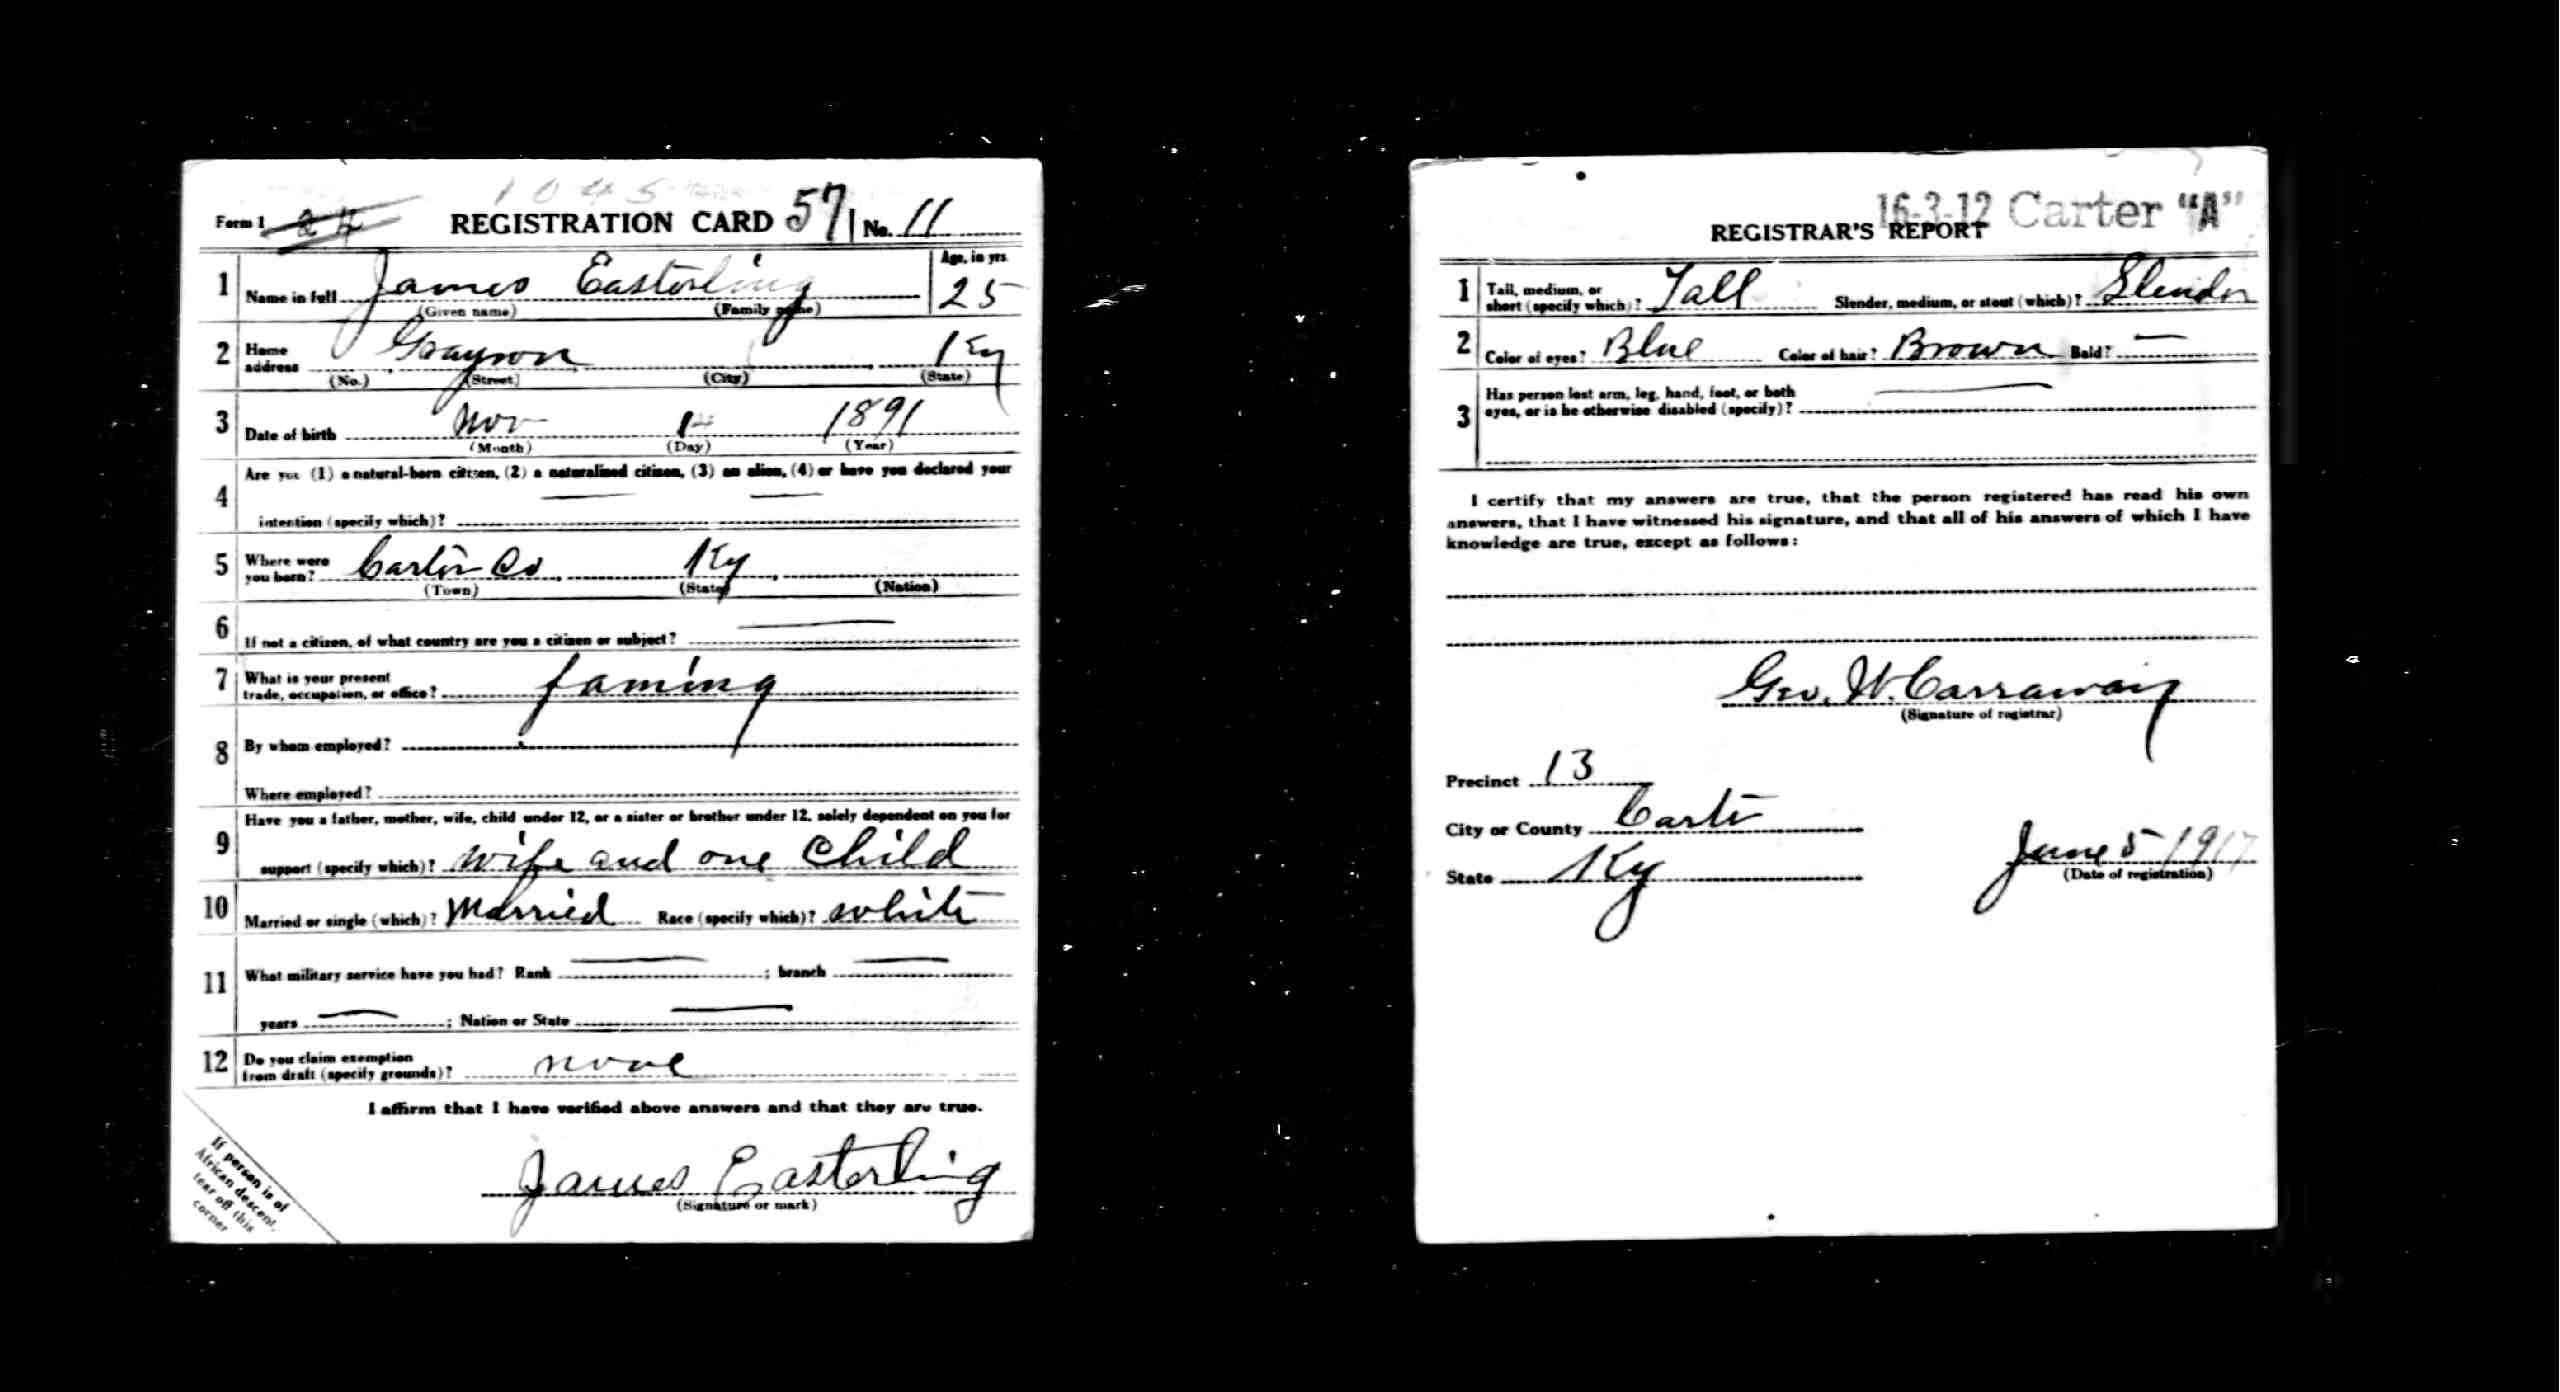 1045
Form 1 24 REGISTRATION CARD 57 No. 11
1 Name in full James Easterling Age, in yrs. 25
(Given name) (Family name)
2 Home address Grayson Ky
(No.) (Street) (City) (State)
3 Date of birth Nov 1 1891
(Month) (Day) (Year)
4 Are you (1) a natural-born citizen, (2) a naturalized citizen, (3) an alien, (4) or have you declared your
intention (specify which)?
5 Where were you born? Carter Co Ky
(Town) (State) (Nation)
6 If not a citizen, of what country are you a citizen or subject?
7 What is your present trade, occupation, or office? faming
8 By whom employed?
Where employed?
9 Have you a father, mother, wife, child under 12, or a sister or brother under 12, solely dependent on you for
support (specify which)? wife and one child
10 Married or single (which)? Married Race (specify which)? white
11 What military service have you had? Rank ; branch
years ; Nation or State
12 Do you claim exemption from draft (specify grounds)? none
I affirm that I have verified above answers and that they are true.
James Easterling
(Signature or mark)
If person is of
African descent,
tear off this
corner
16-3-12 Carter "A"
REGISTRAR'S REPORT
1 Tall, medium, or short (specify which)? Tall Slender, medium, or stout (which)? Slender
2 Color of eyes? Blue Color of hair? Brown Bald?
3 Has person lost arm, leg, hand, foot, or both
eyes, or is he otherwise disabled (specify)?
I certify that my answers are true, that the person registered has read his own
answers, that I have witnessed his signature, and that all of his answers of which I have
knowledge are true, except as follows:
Geo. W. Carraway
(Signature of registrar)
Precinct 13
City or County Carter
State Ky
June 5 1917
(Date of registration)